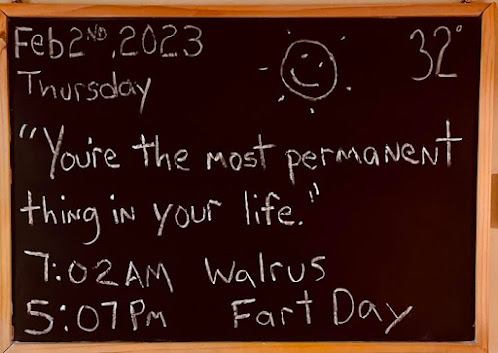 Feb 2ND, 2023 32°
Thursday
"You're the most permanent
thing in your life."
7:02 AM Walrus
5:07 PM Fart Day